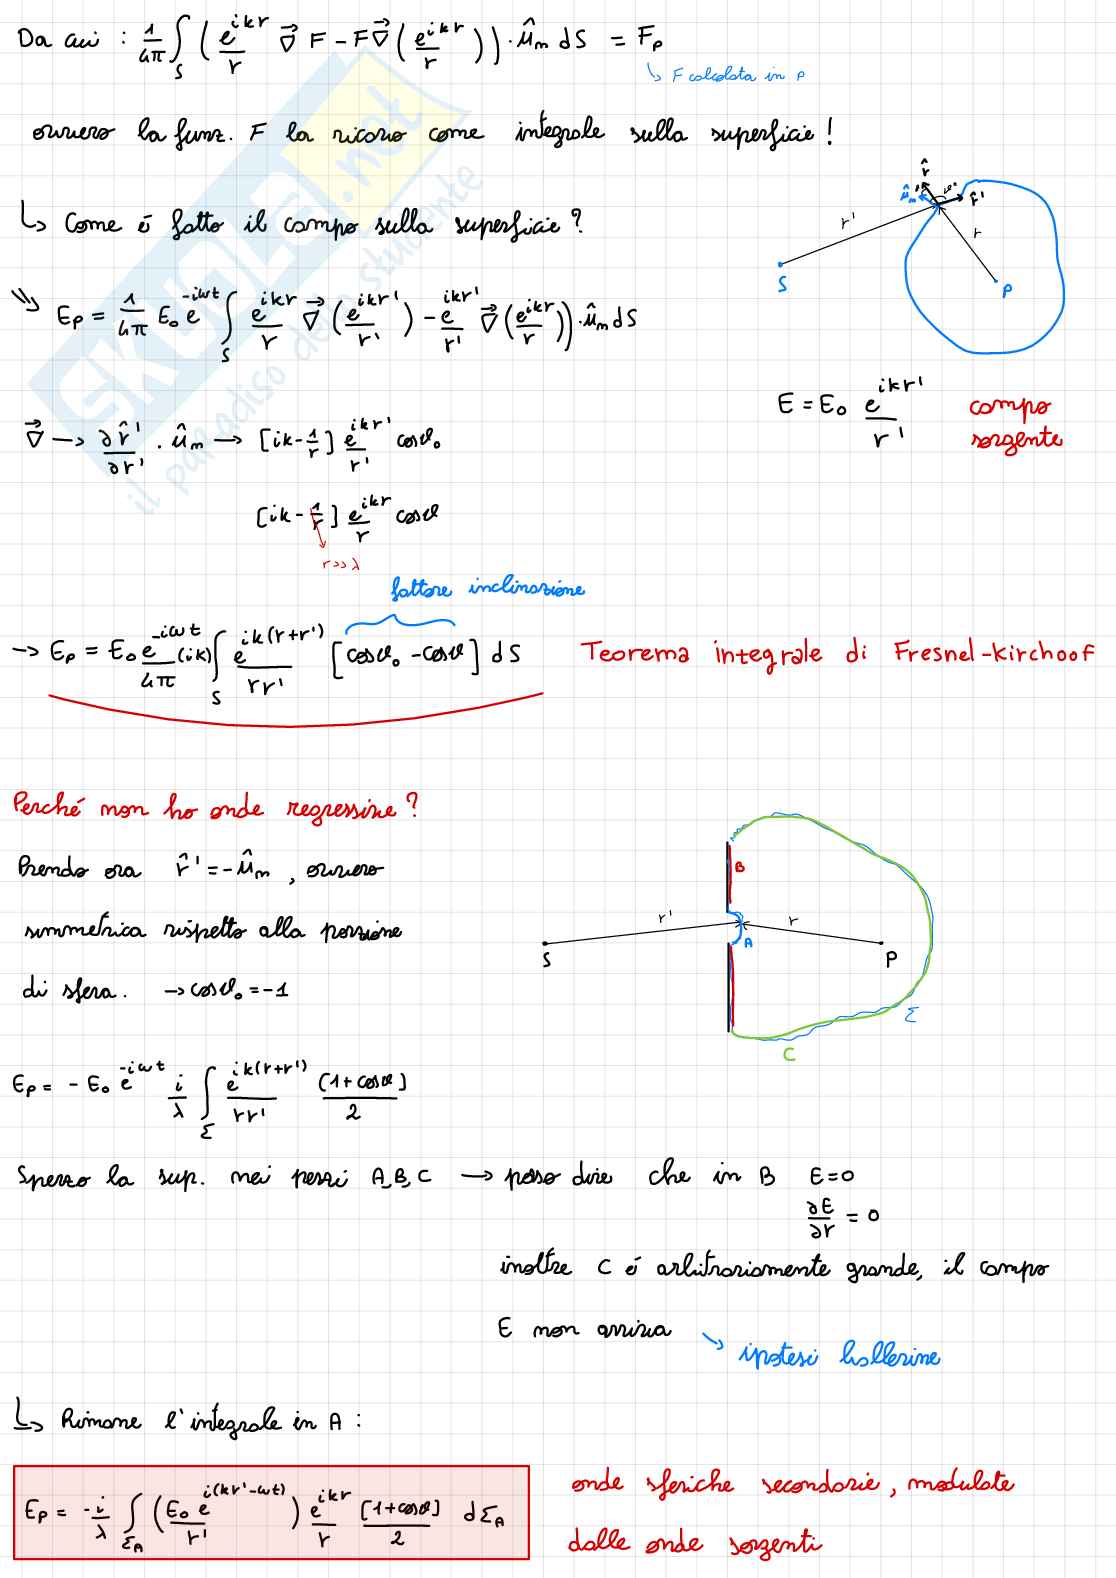 Da cui : 1/4π ∫_S ( e^{ikr}/r ∇⃗ F - F ∇⃗ ( e^{ikr}/r ) ) · û_n dS = F_P
↳ F calcolata in P
ovvero la funz. F la ricavo come integrale sulla superficie !
↳ Come é fatto il campo sulla superficie ?
r̂ û_n ϑ ϑ° r̂' r' r S P
⇒ E_P = 1/4π E_0 e^{-iωt} ∫_S e^{ikr}/r ∇⃗ ( e^{ikr'}/r' ) - e^{ikr'}/r' ∇⃗ ( e^{ikr}/r ) ) · û_n dS
E = E_0 e^{ikr'}/r' campo
sorgente
∇⃗ → ∂r̂'/∂r' · û_n → [ik - 1/r] e^{ikr'}/r' cosϑ_0
[ik - 1/r] e^{ikr}/r cosϑ
r>>λ
fattore inclinazione
→ E_P = E_0 e^{-iωt}/4π (ik) ∫_S e^{ik(r+r')}/rr' [cosϑ_0 - cosϑ] dS Teorema integrale di Fresnel-Kirchoof
Perché non ho onde regressive ?
Prendo ora r̂' = - û_n , ovvero
simmetrica rispetto alla porzione
di sfera. → cosϑ_0 = -1
B r' r A S P Σ C
E_P = - E_0 e^{-iωt} i/λ ∫_Σ e^{ik(r+r')}/rr' [1+cosϑ]/2
Spezzo la sup. nei pezzi A,B,C → posso dire che in B E=0
∂E/∂r = 0
inoltre C é arbitrariamente grande, il campo
E non arriva
↘ ipotesi ballerine
↳ Rimane l'integrale in A :
E_P = -i/λ ∫_{Σ_A} ( E_0 e^{i(kr'-ωt)}/r' ) e^{ikr}/r [1+cosϑ]/2 dΣ_A
onde sferiche secondarie, modulate
dalle onde sorgenti
SKUOLA.net
il paradiso dello studente